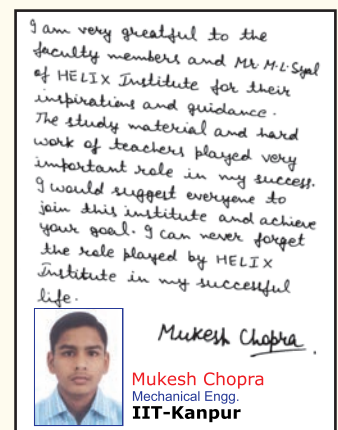 I am very greatful to the
faculty members and Mr. M.L. Syal
of HELIX Institute for their
inspirations and guidance.
The study material and hard
work of teachers played very
important role in my success.
I would suggest everyone to
join this institute and achieve
your goal. I can never forget
the role played by HELIX
Institute in my successful
life.
Mukesh Chopra.
Mukesh Chopra
Mechanical Engg.
IIT-Kanpur